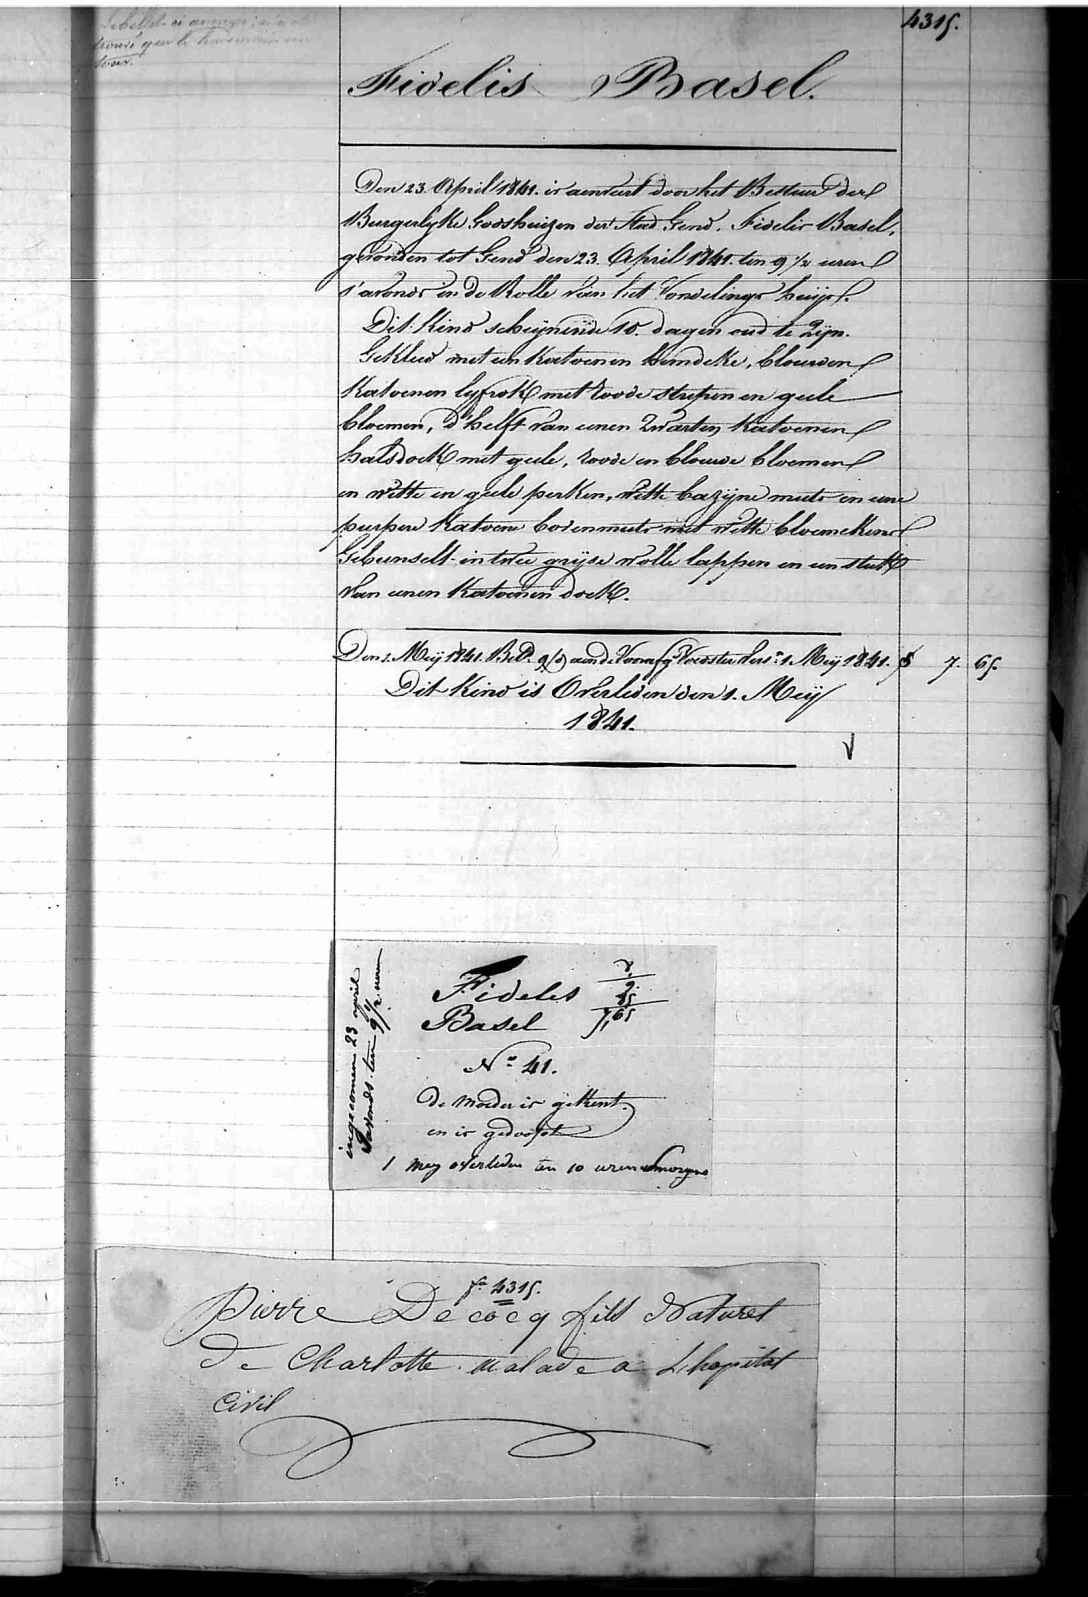 4315.
Fidelis Basel.
Den 23. April 1841. is aenveert door het Bestuer der
Burgerlyke Godshuizen der Stad Gend. Fidelis Basel,
gevonden tot Gend den 23. April 1841. ten 9 1/2 uren
s'avonds in de Rolle van het Vondelings huijs.
Dit Kind schijnende 10. dagen oud te zijn.
Gekleed met een Katoenen hemdeke, blouwen
Katoenen lyfrok met roode strepen en geele
bloemen, d'helft van eenen zwarten Katoenen
halsdoek met geele, roode en blouwe bloemen
en witte en geele perken, witte bazijne muts en eene
purpere Katoene bovenmuts met witte bloemekens
Gebunselt in twee grijse wolle lappen en een stuk
van eenen Katoenen doek.
Den 1. Meij 1841. Bet. aen de Voedster 1. Meij 1841. 7. 65.
Dit Kind is Overleden den 1. Meij
1841.
ingecomen 23 april
Savonds ten 9 1/2 uren
Fideles
Basel
7,65
N° 41.
de moeder is gekent.
en is gedoopt
1 mey overleden ten 10 uren smorgens
fo 4315.
Pierre Decocq fils Naturel
De Charlotte Malade a L'hopital
Civil